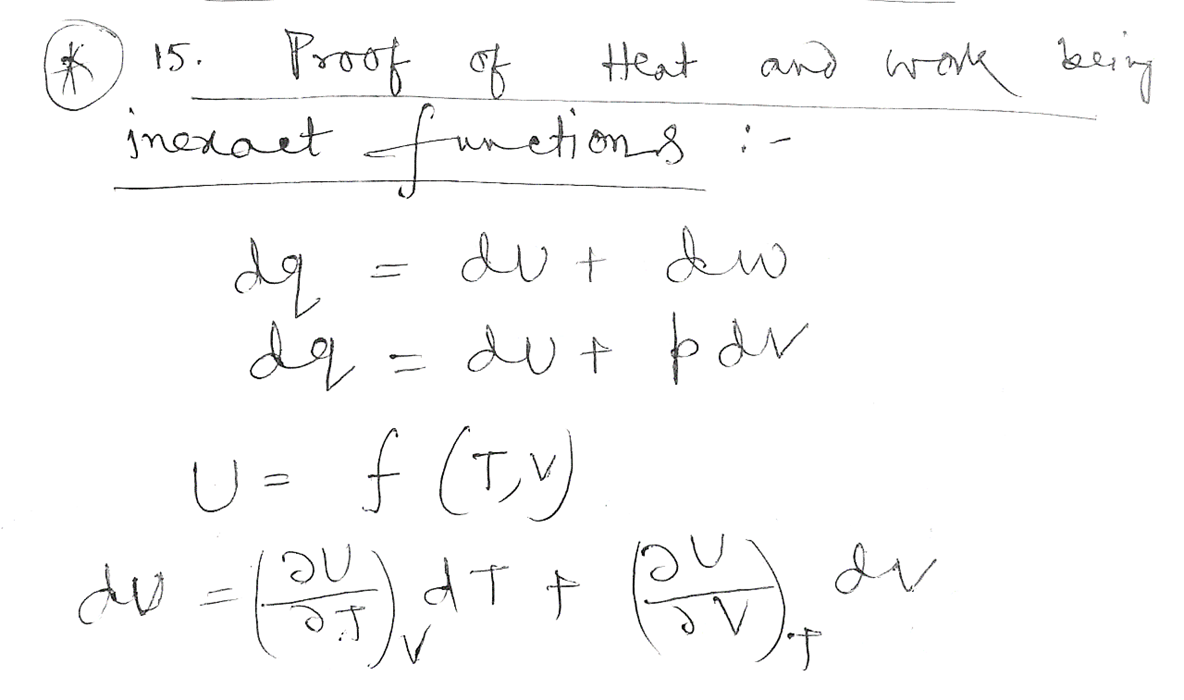 * 15. Proof of Heat and work being
inexact functions :-
dq = dU + dw
dq = dU + pdV
U = f (T,V)
dU = (∂U/∂T)_V dT + (∂U/∂V)_T dV